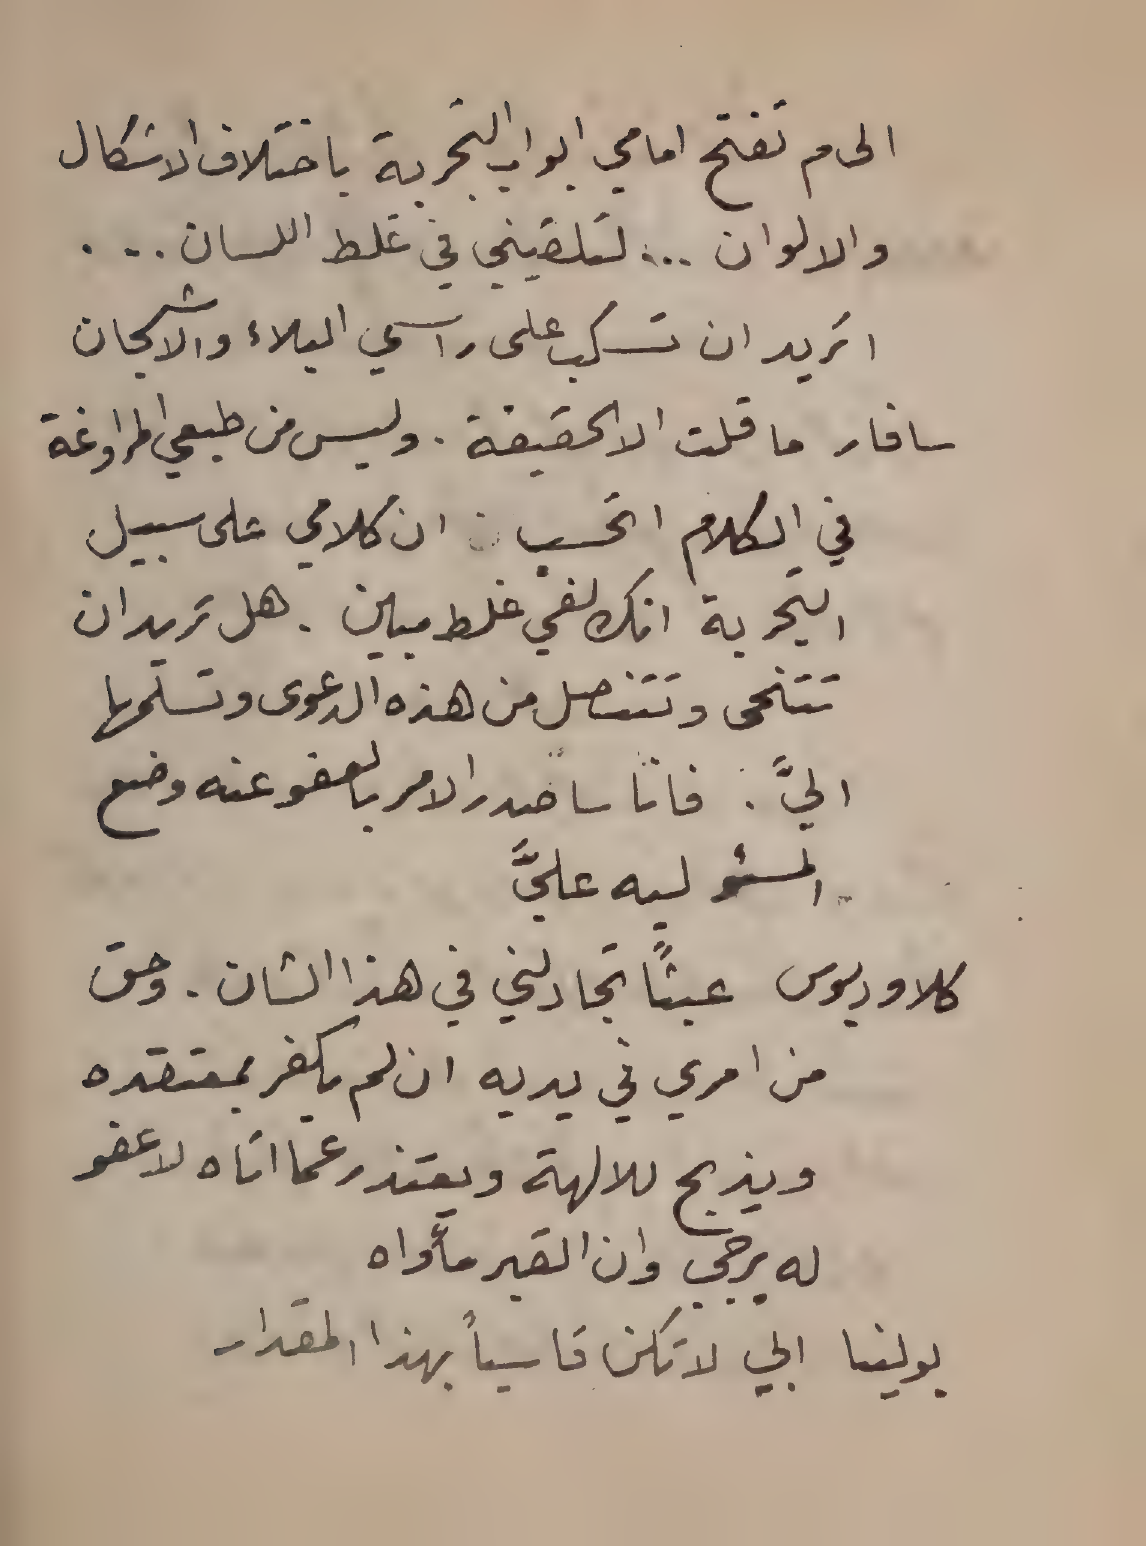 الى م تفتح امامي ابواب التجربة باختلاف الاشكال
والالوان ... لتلقيني في غلط اللسان ...
اتريد ان تسكب على راسي البلاء والاشجان
سافار ما قلت الا الحقيقة . وليس من طبعي المراوغة
في الكلام اتحسب ان كلامي على سبيل
التجربة انك لفي غلط مبين . هل تريد ان
تتنحى وتتنصل من هذه الدعوى وتسلمها
اليَّ . فانا ساصدر الامر بالعفو عنه وضع
المسئوليه عليَّ
كلاوديوس عبثًا تجادلني في هذا الشان . وحق
من امري في يديه ان لم يكفر بمعتقده
ويذبح للالهة ويعتذر عما اتاه لا عفو
له يرجى وان القبر مأواه
بولينا ابي لا تكن قاسياً بهذا المقدار